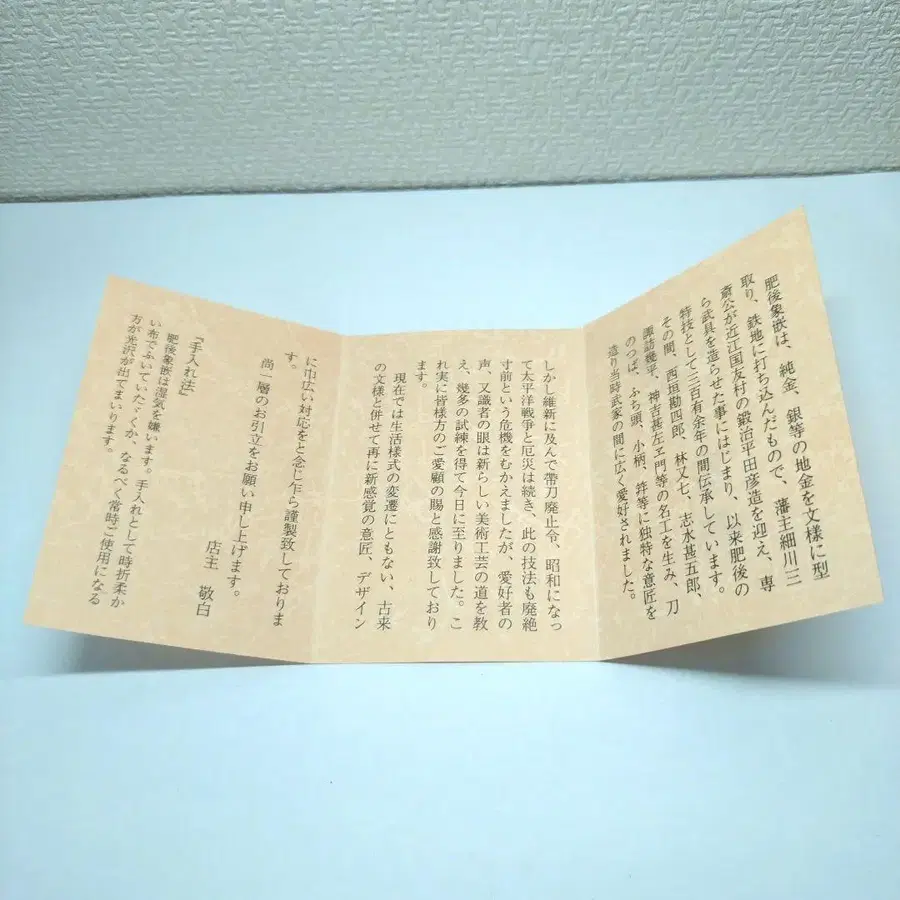 肥後象嵌は、純金、銀等の地金を文様に型
取り、鉄地に打ち込んだもので、藩主細川三
斎公が近江国友村の鍛治平田彦造を迎え、専
ら武具を造らせた事にはじまり、以来肥後の
特技として三百有余年の間伝承しています。
その間、西垣勘四郎、林又七、志水甚五郎、
諏訪幾平、神吉甚左ヱ門等の名工を生み、刀
のつば、ふち頭、小柄、笄等に独特な意匠を
造り当時武家の間に広く愛好されました。
しかし維新に及んで帯刀廃止令、昭和になっ
て太平洋戦争と厄災は続き、此の技法も廃絶
寸前という危機をむかえましたが、愛好者の
声、又識者の眼は新らしい美術工芸の道を教
え、幾多の試練を得て今日に至りました。こ
れ実に皆様方のご愛顧の賜と感謝致しており
ます。
現在では生活様式の変遷にともない、古来
の文様と併せて再に新感覚の意匠、デザイン
に巾広い対応をと念じ乍ら謹製致しておりま
す。
尚一層のお引立をお願い申し上げます。
店主　敬白
『手入れ法』
肥後象嵌は湿気を嫌います。手入れとして時折柔か
い布でふいていたゞくか、なるべく常時ご使用になる
方が光沢が出てまいります。